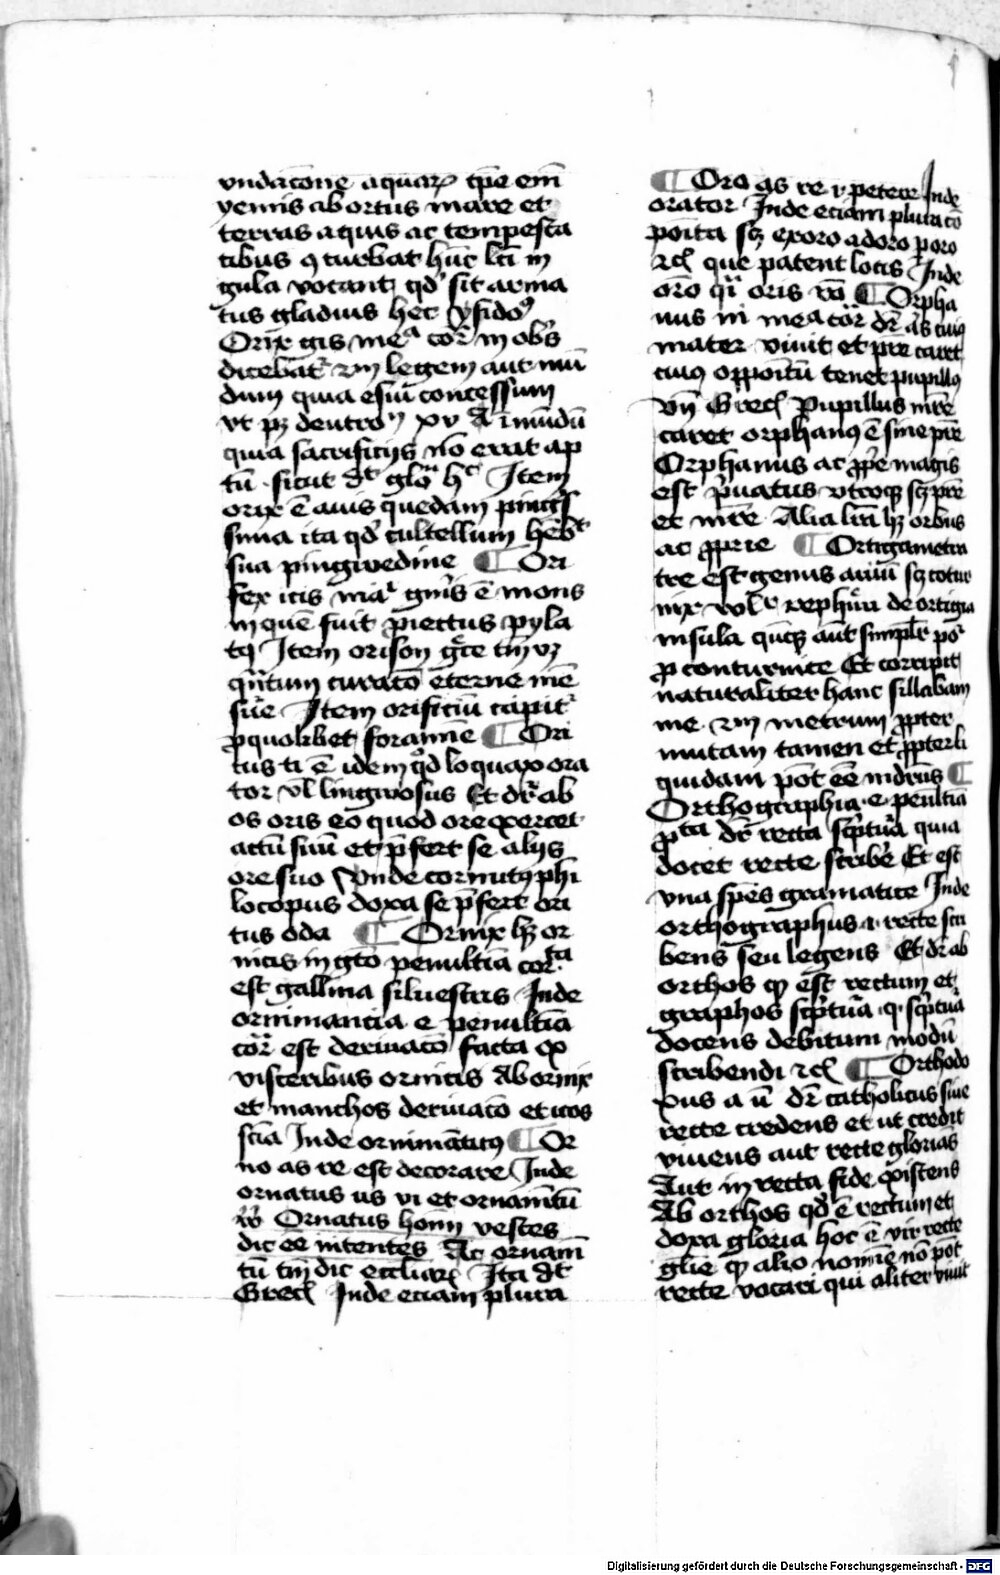 vndacōne aquaꝝ tp̄e em̄
yemis ab ortus mare et
terras aquis ac tempesta
tibus ꝯturbat hūc lt̄i in
gula vocant qd' sit arma
tus gladius hec ysidoꝰ
Orix gis meᵃ cor̄ in obs̄
dicebat' in legem aut mū
dum quia esiū concessum
vt pꝫ deutroⁿ xv Ar īmūdū
quia sacrificijs nō erat ap
tū sicut dt̄ glo hᶜ Item
orix ē auis quedam pingᵉs
sima ita qd' cultellum heb̄t
sua pingwedine ¶ Ori
fex icis mā gn̄is ē mons
in quē fuit ꝓiectus pyla
tꝰ Item orison gͣce tm̄ vꝫ
qn̄tum curatō eterne mē
sūe Item orificiū capit'
ꝓ quolibet foramīe ¶ Ori
tus ti ē idem qd' loquax ora
tor vl̄ lingwosus Et dr̄ ab
os oris eo quod ore exercet
actū suū et p̄fert se alijs
ore suo Vnde cornutꝰ phi
locopus doxa se p̄fert ori
tus oda ¶ Ornix lꝫ or
nicis in gtō penultīa cor.ta
est gallina siluestris Inde
ornimancia e penultīa
cor̄ est deriuatō facta ex
visceribus ornicis Ab ornix
et manchos deriuatō et icos
sc̄ia Inde ornimāticꝰ ¶ Or
no as re est decorare Inde
ornatus us ui et ornamētū
vō Ornatus homī vestes
dic eē nitentes Ac ornam̄
tū tm̄ dic eccliaꝝ Ita dt̄
Grecꝭ Inde eciam plura
¶ Oro as re i petere Inde
orator Inde eciam plura cō
poīta scꝫ exoro adoro ꝑoro
ꝛcꝭ que patent locis Inde
oro q̄i oris rō ¶ Orpha
nus ni meᵃ cōr dr̄ as̄ cuiꝰ
mater viuit et pr̄e caret
cuiꝰ oppoītū tenet pupillꝰ
vn̄ Grecꝭ Pupillus mr̄e
caret orphanꝰ ē sine pr̄e
Orphanus ac ꝓpe magis
est p̄uatus vtroqꝫ scꝫ pr̄e
et mr̄e Alia lr̄a hꝫ orbus
ac ꝓprie ¶ Ortigametra
tre est genus auiū scꝫ cotur
nix vol rephūn de ortigia
insula quēqꝫ aut simplr̄ poʳ
ꝓ conturnice Et corripit
naturaliter hanc sillabam
me in metrum ꝓpter
mutam tamen et ꝓpter li
quidam pōt eē indrn̄s ¶
Orthographia e penultīa
ꝓta dr̄ recta scptūa quia
docet recte scribē Et est
vna spēs gramatice Inde
orthographus i recte scri
bens seu legens Et dr̄ ab
orthos qꝫ est rectum et
graphos scptūa q. scptūa
docens debitum modū
scribendi ꝛcꝭ ¶ Orthodo
xus a ū dr̄ catholicus siue
recte credens et ut credit
viuens aut recte glorians
Aut in recta fide existens
Ab orthos qd' ē rectum et
doxa gloria hoc ē vir recte
gl̄ie qꝫ alio nomīe nō pōt
recte vocari qui aliter viuit
Digitalisierung gefördert durch die Deutsche Forschungsgemeinschaft - DFG